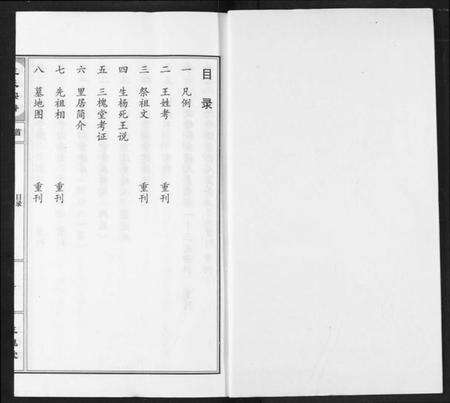 目录
一 凡例
二 王姓考 重刊
三 祭祖文 重刊
四 生杨死王说
五 三槐堂考证
六 里居简介
七 先祖相 重刊
八 墓地图 重刊
目录